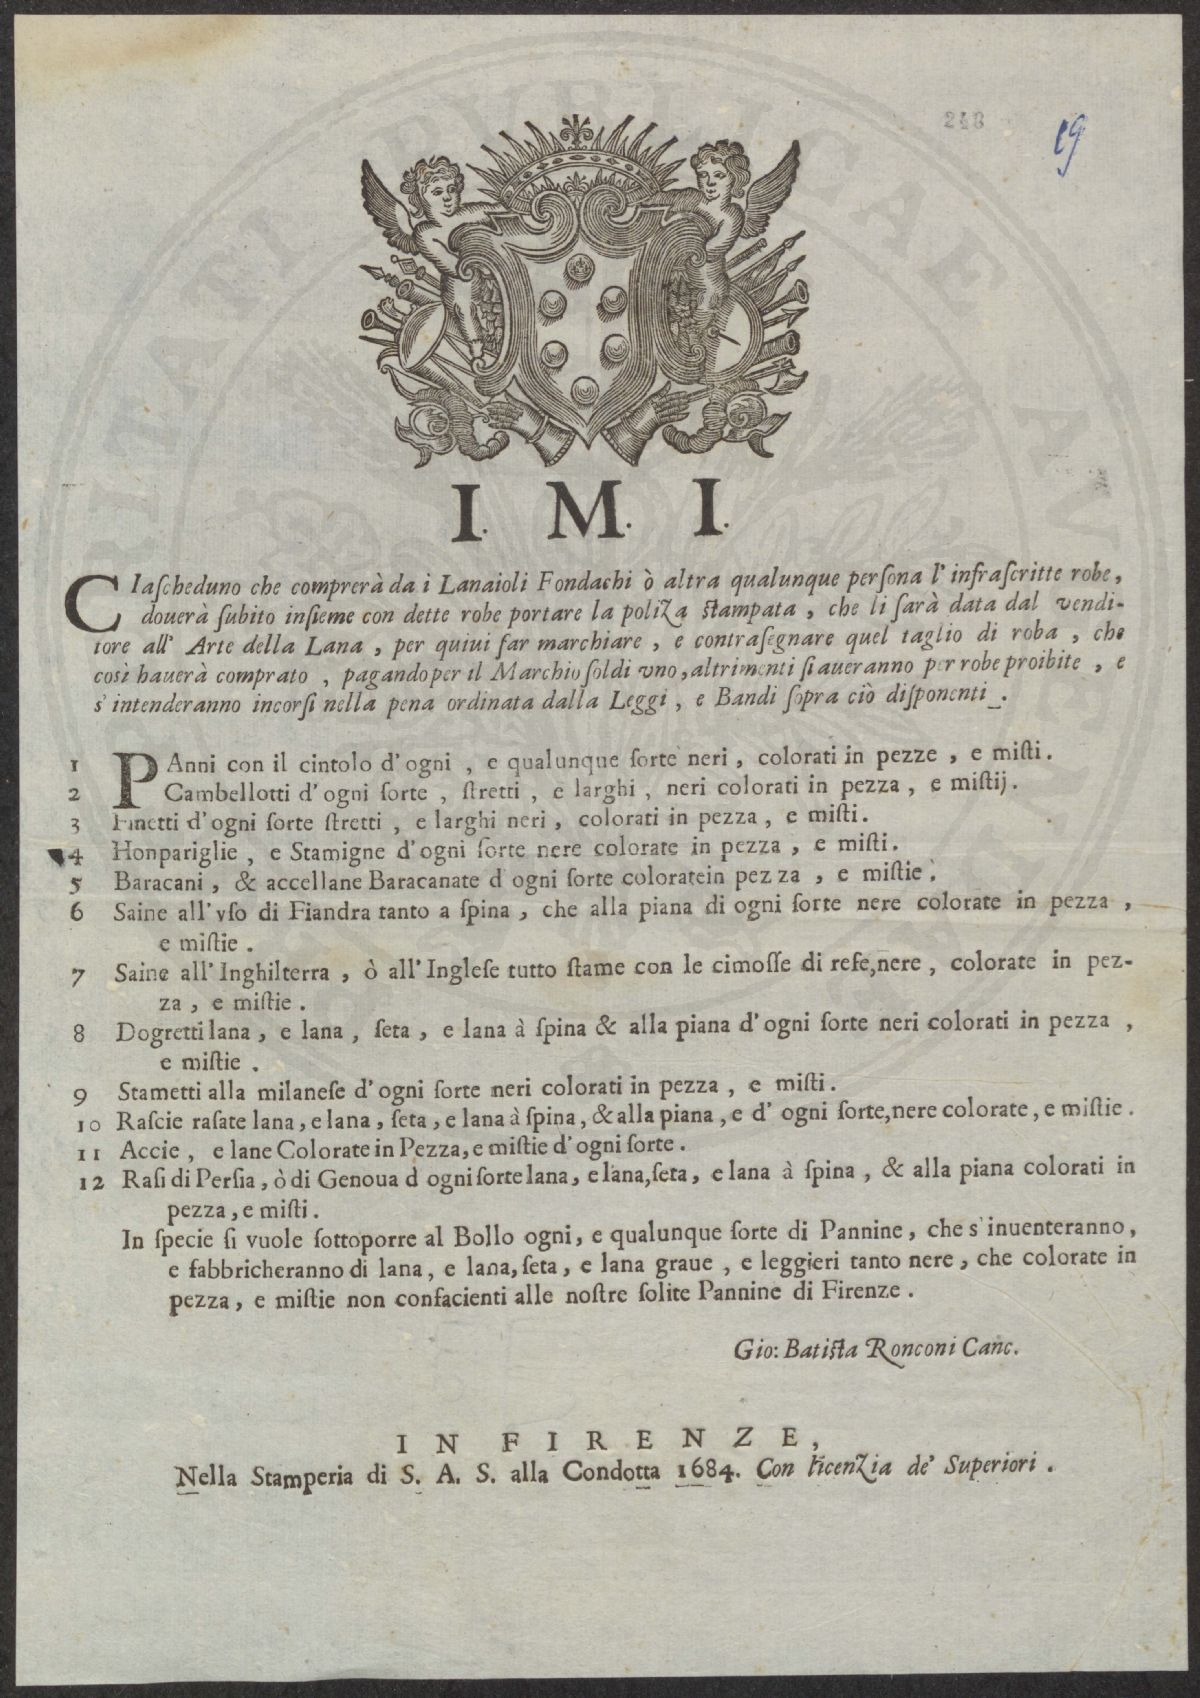 248
19
I. M. I.
CIaſcheduno che comprerà da i Lanaioli Fondachi ò altra qualunque perſona l' infraſcritte robe,
douerà ſubito inſieme con dette robe portare la poliza ſtampata, che li ſarà data dal vendi-
tore all' Arte della Lana, per quiui far marchiare, e contraſegnare quel taglio di roba, che
così hauerà comprato, pagando per il Marchio ſoldi vno, altrimenti ſi aueranno per robe proibite, e
s' intenderanno incorſi nella pena ordinata dalla Leggi, e Bandi ſopra ciò diſponenti.
1 PAnni con il cintolo d'ogni, e qualunque ſorte neri, colorati in pezze, e miſti.
2 Cambellotti d'ogni ſorte, ſtretti, e larghi, neri colorati in pezza, e miſtij.
3 Finetti d'ogni ſorte ſtretti, e larghi neri, colorati in pezza, e miſti.
4 Honpariglie, e Stamigne d'ogni ſorte nere colorate in pezza, e miſti.
5 Baracani, & accellane Baracanate d ogni ſorte coloratein pezza, e miſtie.
6 Saine all'vſo di Fiandra tanto a ſpina, che alla piana di ogni ſorte nere colorate in pezza,
e miſtie.
7 Saine all'Inghilterra, ò all'Ingleſe tutto ſtame con le cimoſſe di refe, nere, colorate in pez-
za, e miſtie.
8 Dogretti lana, e lana, ſeta, e lana à ſpina & alla piana d'ogni ſorte neri colorati in pezza,
e miſtie.
9 Stametti alla milaneſe d'ogni ſorte neri colorati in pezza, e miſti.
10 Raſcie raſate lana, e lana, ſeta, e lana à ſpina, & alla piana, e d' ogni ſorte, nere colorate, e miſtie.
11 Accie, e lane Colorate in Pezza, e miſtie d'ogni ſorte.
12 Raſi di Perſia, ò di Genoua d ogni ſorte lana, e lana, ſeta, e lana à ſpina, & alla piana colorati in
pezza, e miſti.
In ſpecie ſi vuole ſottoporre al Bollo ogni, e qualunque ſorte di Pannine, che s'inuenteranno,
e fabbricheranno di lana, e lana, ſeta, e lana graue, e leggieri tanto nere, che colorate in
pezza, e miſtie non confacienti alle noſtre ſolite Pannine di Firenze.
Gio: Batiſta Ronconi Canc.
IN FIRENZE,
Nella Stamperia di S. A. S. alla Condotta 1684. Con licenzia de' Superiori.